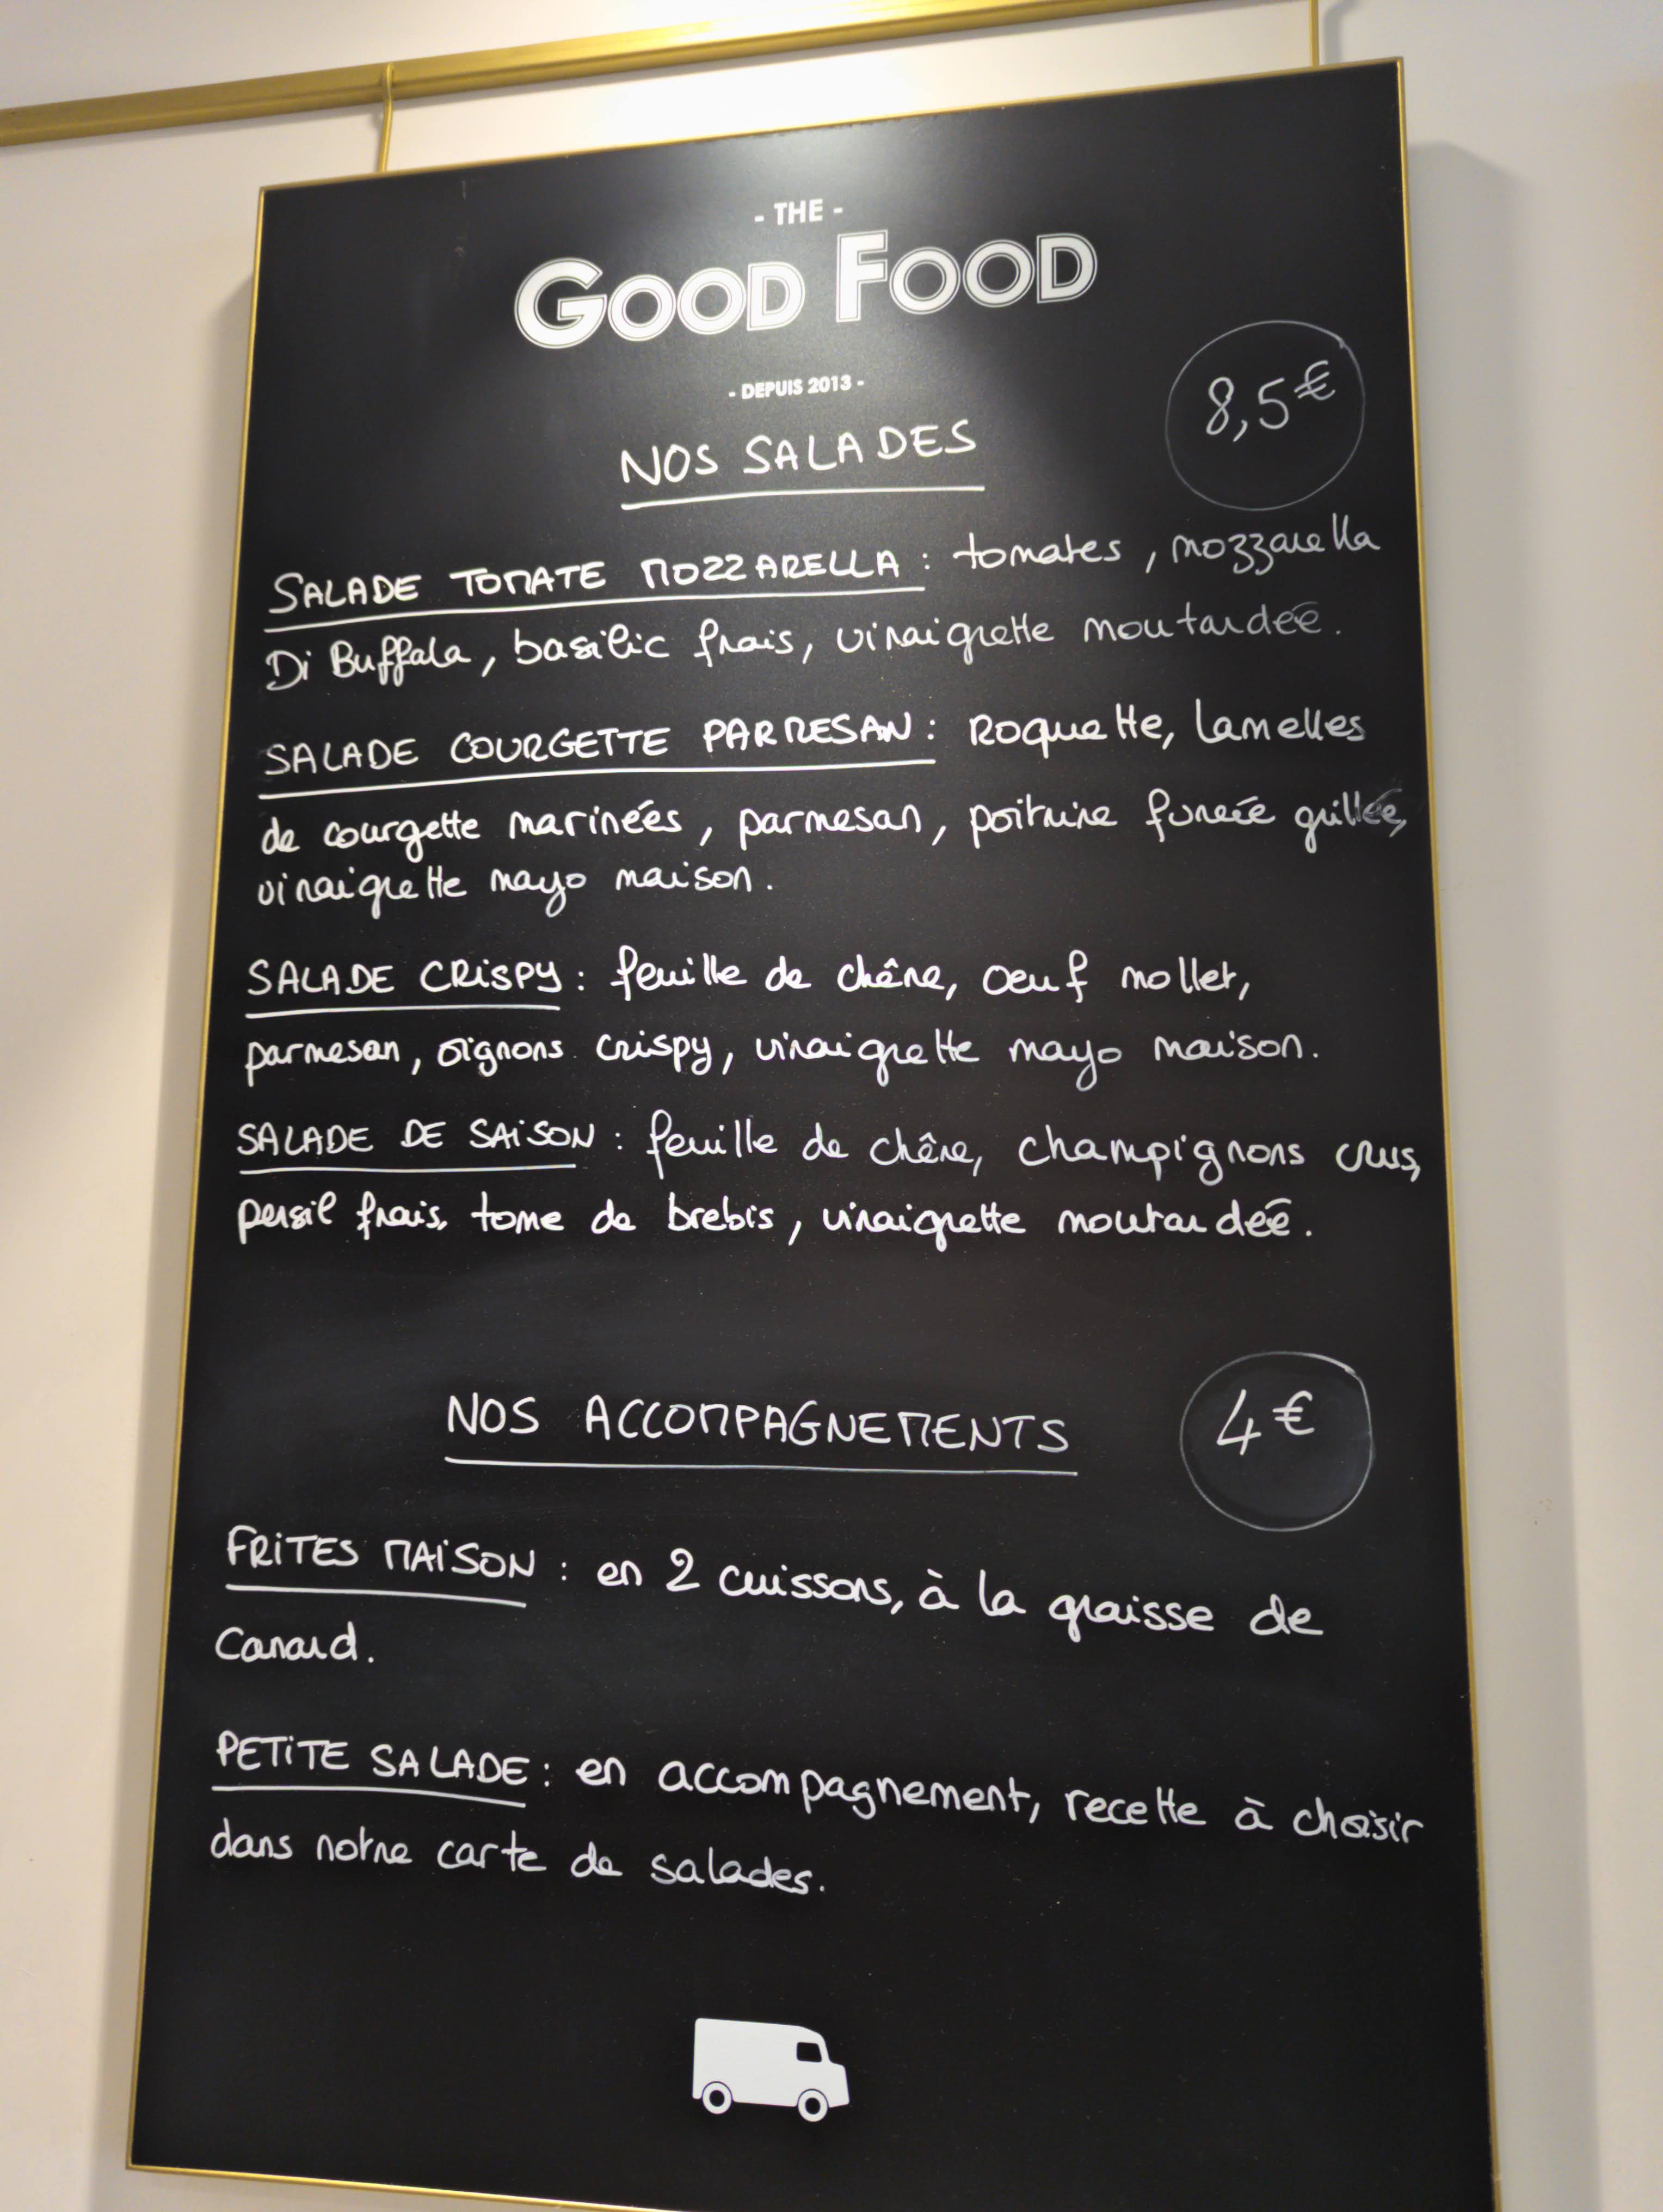 - THE -
GOOD FOOD
- DEPUIS 2013 -
8,5€
NOS SALADES
SALADE TOMATE MOZZARELLA : tomates, mozzarella
Di Buffala, basilic frais, vinaigrette moutardée.
SALADE COURGETTE PARMESAN : Roquette, lamelles
de courgette marinées, parmesan, poitrine fumée grillée,
vinaigrette mayo maison.
SALADE CRISPY : feuille de chêne, oeuf mollet,
parmesan, oignons crispy, vinaigrette mayo maison.
SALADE DE SAISON : feuille de chêne, champignons crus,
persil frais, tome de brebis, vinaigrette moutardée.
NOS ACCOMPAGNEMENTS
4€
FRITES MAISON : en 2 cuissons, à la graisse de
Canard.
PETITE SALADE : en accompagnement, recette à choisir
dans notre carte de salades.